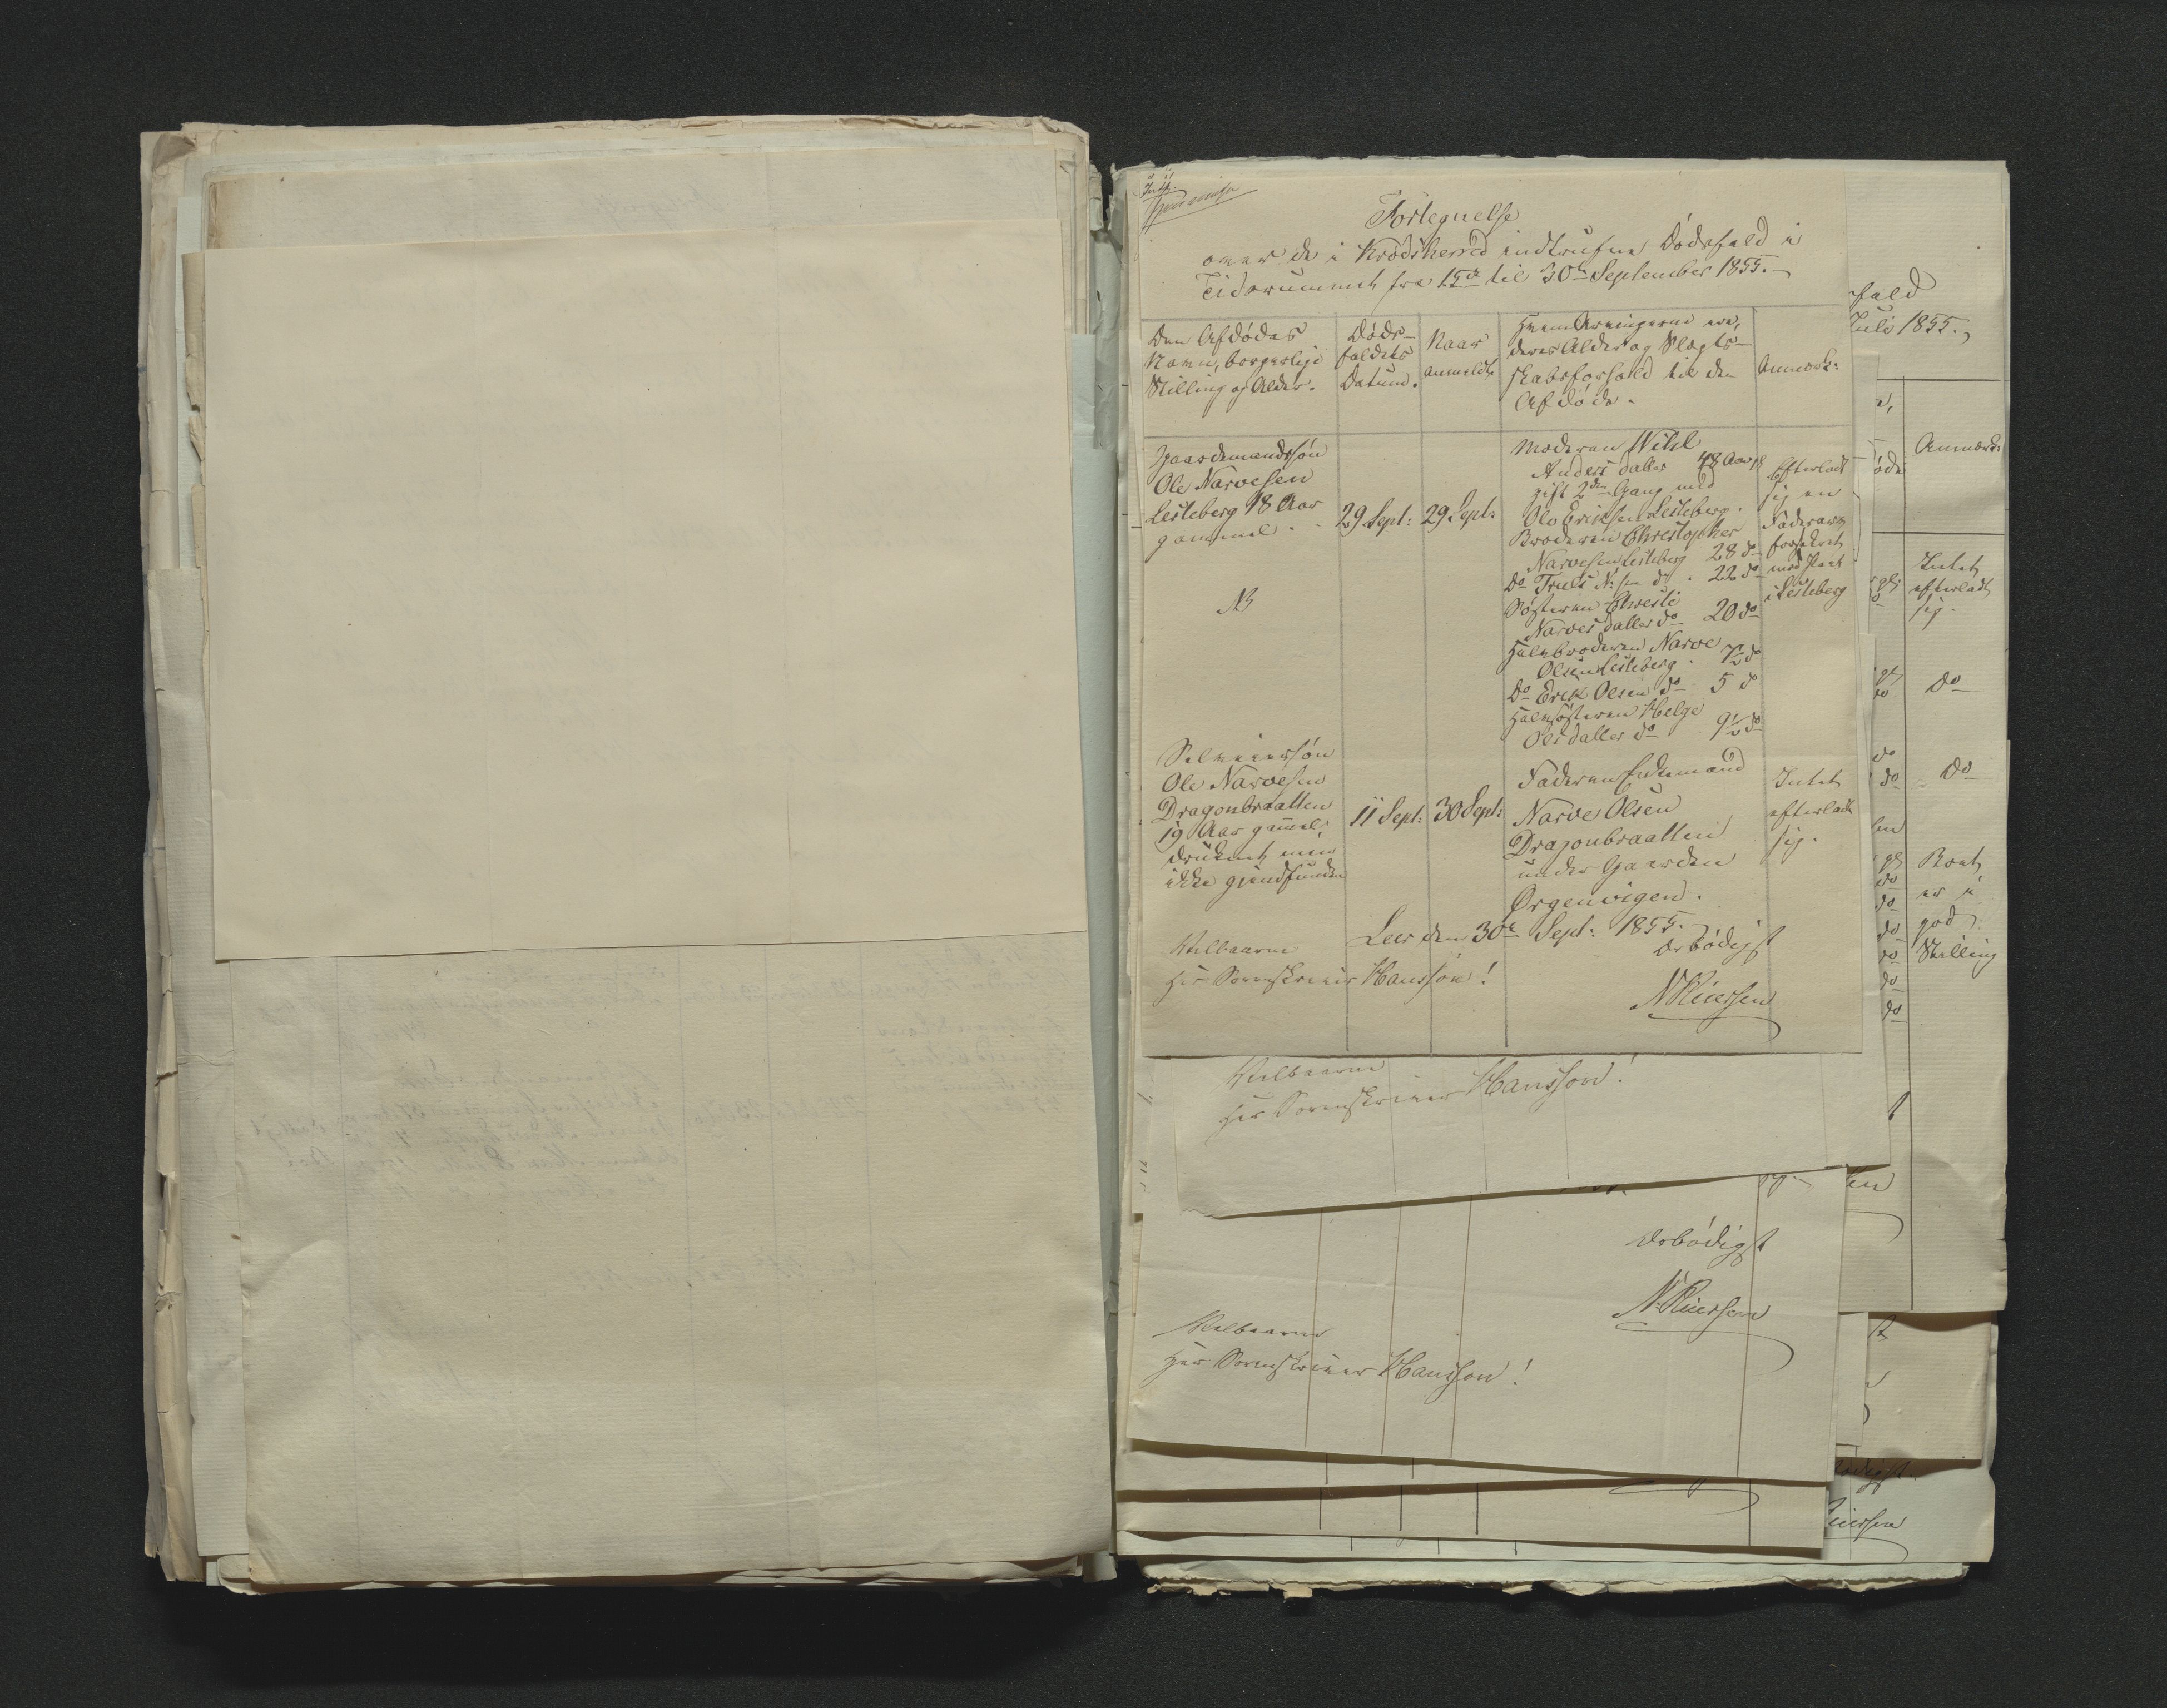 Fortegnelse
over de i Krødsherred indtrufne Dødsfald i
Tidsrummet fra 15de til 30te September 1855.
Den Afdødes
Navn, borgerlige
Stilling og Alder.
Døds-
faldets
Datum.
Naar
anmeldt
Hvem Arvingerne ere,
deres Alder og Slægt-
skabsforhold til den
Afdøde.
Anmærk:
Gaardemandssøn
Ole Narvesen
Lesteberg 18 Aar
gammel.
NB
29 Sept:
29 Sept:
Moderen
Anders datter 48 Aar
gift 2den Gang med
Ole Eriksen Lesteberg.
Broderen Christopher
Narvesen Lesteberg 28 do
Do Truls N:sen do 22 do
Søsteren Chresti
Narves datter do 20 do
Halvbroderen Narve
Olsen Lesteberg 7½ do
Do Erik Olsen do 5 do
Halvsøsteren Helge
Olsdatter do 9½ do
Efterladt
sig en
Fadersarv
forsikret
med Pant
i Lesteberg
Selveiersøn
Ole Narvesen
Dragonbraatten
19 Aar gammel,
druknet men
ikke gjenfunden
11 Sept:
30 Sept:
Faderen Enkemand
Narve Olsen
Dragonbraatten
under Gaarden
Ørgenvigen.
Intet
efterladt
sig.
Leer den 30te Sept: 1855.
ærbødigst
Velbaarne
Hr Sorenskriver Hansson!
Velbaarne
Hr Sorenskriver Hansson!
ærbødigst
Velbaarne
Hr Sorenskriver Hansson!
fald
Juli 1855.
Anmærk:
Intet
efterladt
sig.
Do
Do
Boet
er i
god
Stilling